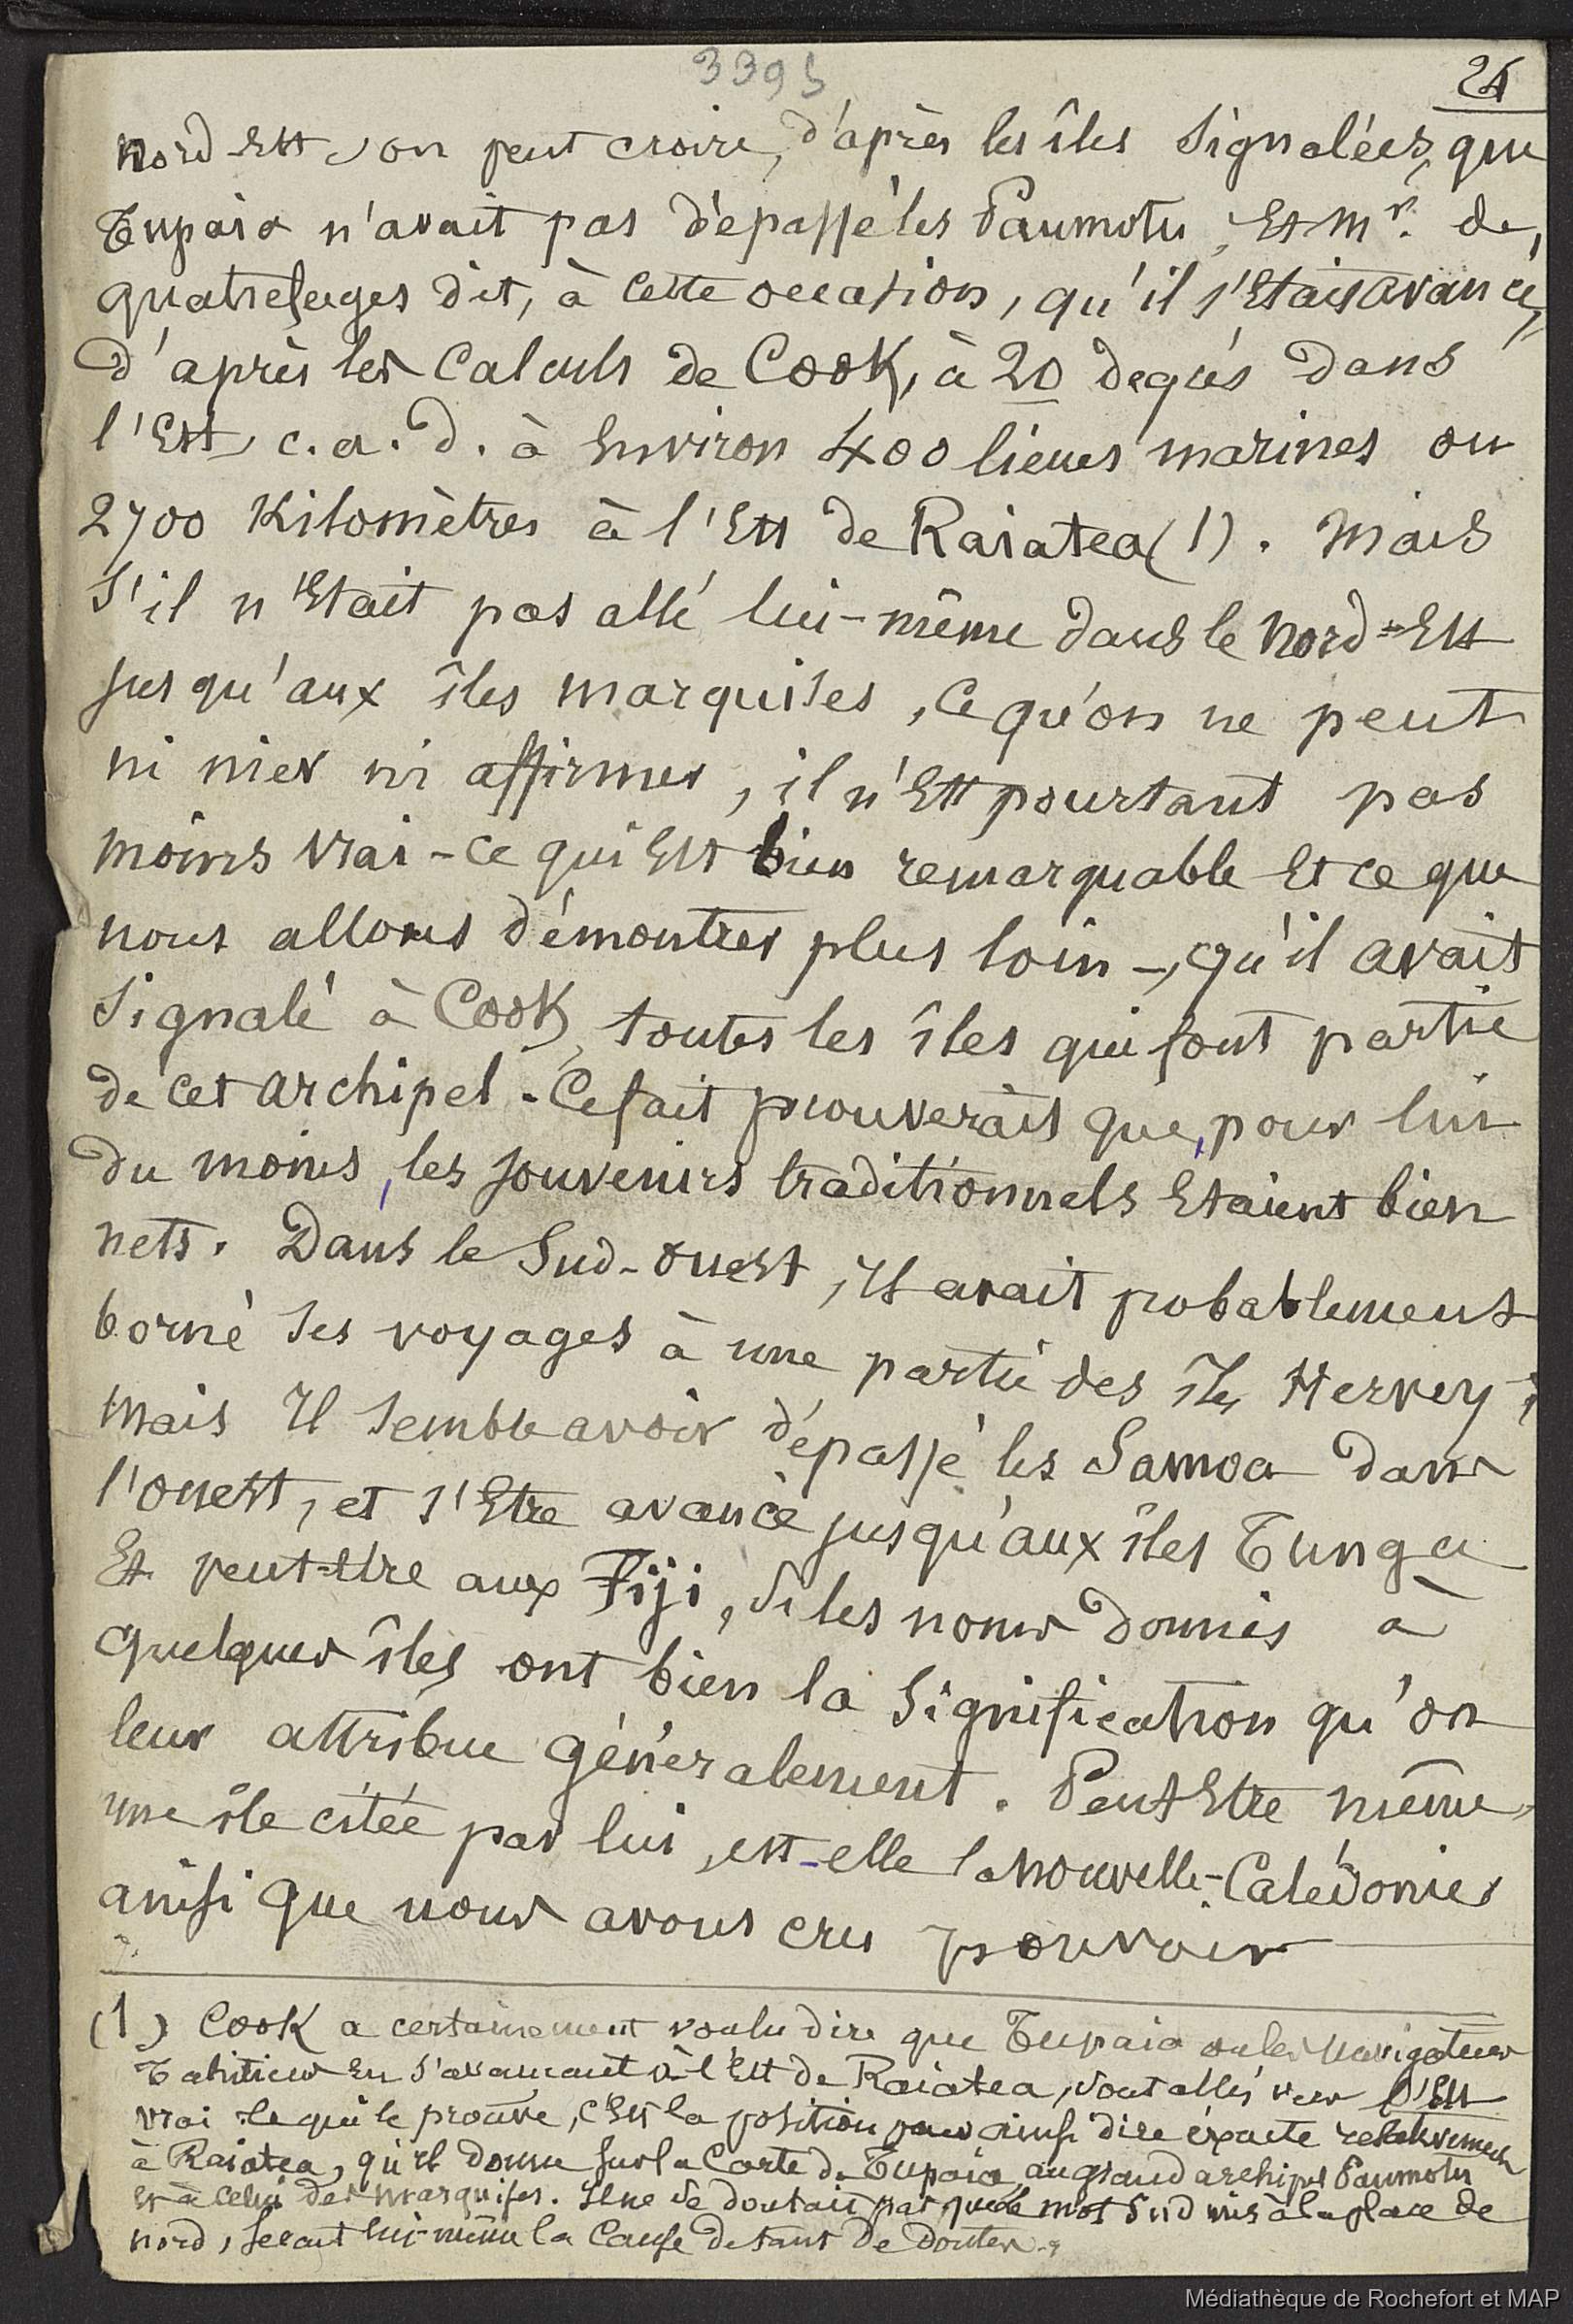 3395
24
Nord-Est, on peut croire, d'après les îles signalées, que
Tupaia n'avait pas dépassé les Paumotu, Et Mr. de
quatrefages dit, à cette occasion, qu'il s'Etait avancé,
d'après les Calculs de Cook, à 20 degrés dans
l'Est, c.a.d. à Environ 400 lieues marines ou
2700 Kilomètres à l'Est de Raiatea (1). Mais
s'il n'Etait pas allé lui-même dans le Nord-Est
jusqu'aux îles marquises, ce qu'on ne peut
ni nier ni affirmer, il n'Est pourtant pas
moins vrai - ce qui Est bien remarquable Et ce que
nous allons démontrer plus loin -, qu'il avait
signalé à Cook, toutes les îles qui font partie
de cet archipel. Ce fait prouverait que, pour lui
du moins, les souvenirs traditionnels Etaient bien
nets. Dans le Sud-Ouest, Il avait probablement
borné ses voyages à une partie des îles Hervey ;
mais Il semble avoir dépassé les Samoa dans
l'Ouest, et s'Etre avancé jusqu'aux îles Tunga
Et peut-être aux Fiji, si les noms donnés à
quelques îles ont bien la signification qu'on
leur attribue généralement. Peut Etre même
une île citée par lui, est-elle la Nouvelle-Calédonie,
ainsi que nous avons cru pouvoir
(1) Cook a certainement voulu dire que Tupaia ou les navigateurs
Tahitiens En s'avancant à l'Est de Raiatea, sont allés vers l'Est
vrai. Ce qui le prouve, c'Est la position pour ainsi dire éxacte relativement
à Raiatea, qu'il donne sur la Carte de Tupaia, au grand archipel Paumotu
Et à celui des Marquises. Il ne se doutait pas que le mot Sud mis à la place de
nord, serait lui-même la Cause de tant de doutes.
Médiathèque de Rochefort et MAP